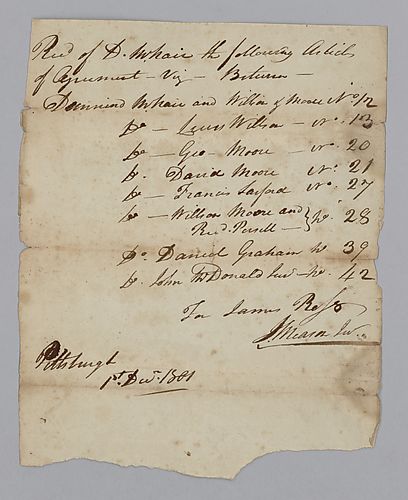 Recd of D. McNair the following Articles
of agreement – Viz – Between
Dunning McNair and Willson & Moore No. 12
Do – Lewis Wilson – No. 13
Do – Geo Moore – No. 20
Do. David Moore No. 21
Do – Francis No. 27
Do – William Moore and
Richd. } No. 28
Do Daniel Graham No 39
Do. John McDonald – No. 42
For James Ross
Pittsburgh
1st Decr. 1801